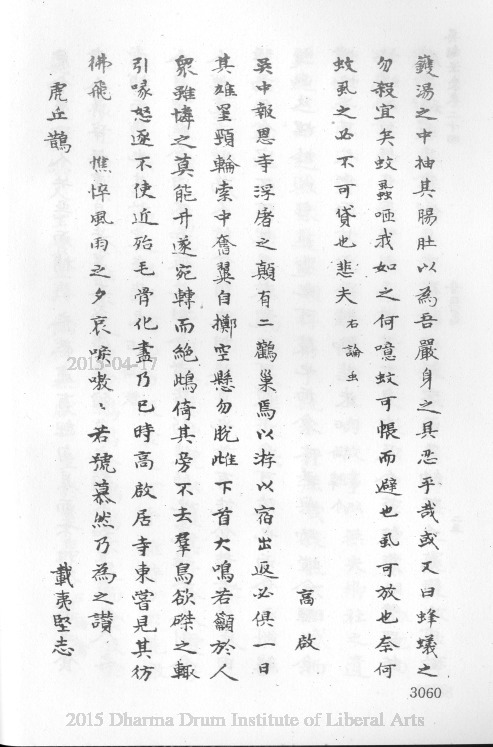 鑊湯之中抽其腸肚以為吾嚴身之具忍乎哉或又曰蜂蟻之
勿殺宜矣蚊蝨咂我如之何噫蚊可帳而避也虱可放也奈何
蚊虱之必不可貸也悲夫 右論虫
高啟
吳中報恩寺浮屠之顛有二鸛巢焉以游以宿出返必俱一日
其雄罣頸輪索中奮翼自擲空懸勿脫雌下首大鳴若籲於人
衆雖憐之莫能升遂宛轉而絕鴟倚其旁不去羣鳥欲磔之輙
引喙怒逐不使近殆毛骨化盡乃已時高啟居寺東嘗見其彷
彿飛 憔悴風雨之夕哀喉嗷〻若號慕然乃為之讃
虎丘鵲 載夷堅志
3060
2013-04-17
2015 Dharma Drum Institute of Liberal Arts